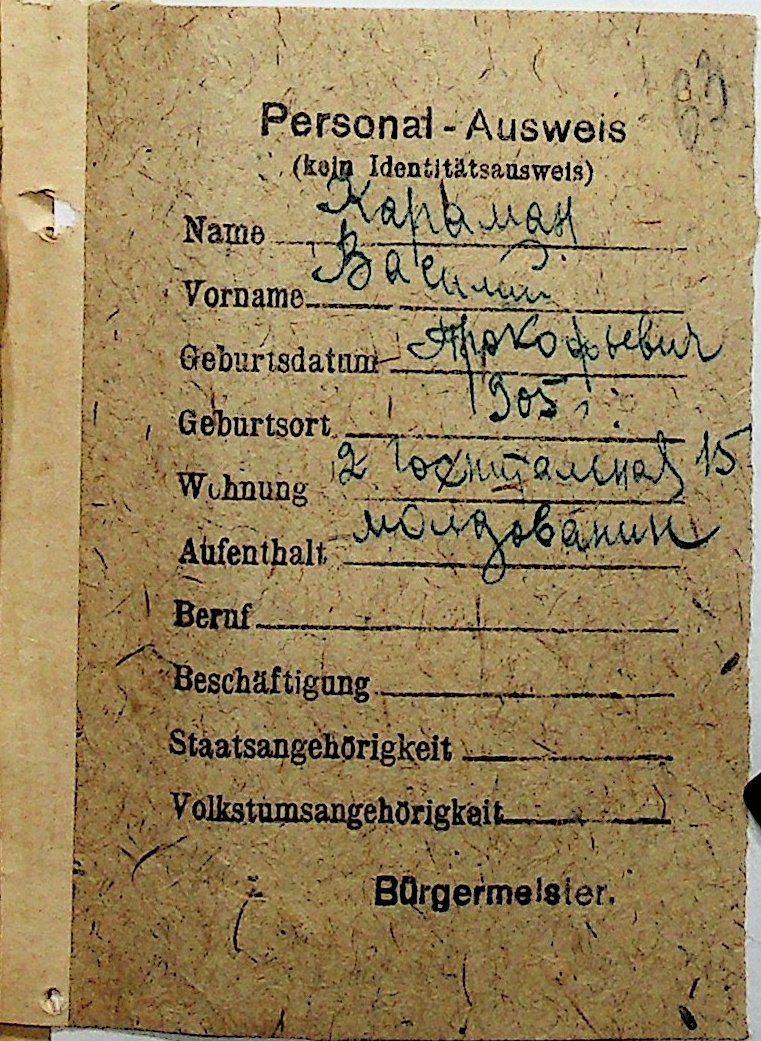 Personal - Ausweis
(kein Identitätsausweis)
Name Караман
Vorname Василий
Geburtsdatum Прокофьевич
Geburtsort 905 г.
Wohnung 2 Госпитальная 15
Aufenthalt молдованин
Beruf
Beschäftigung
Staatsangehörigkeit
Volkstumsangehörigkeit
Bürgermeister.